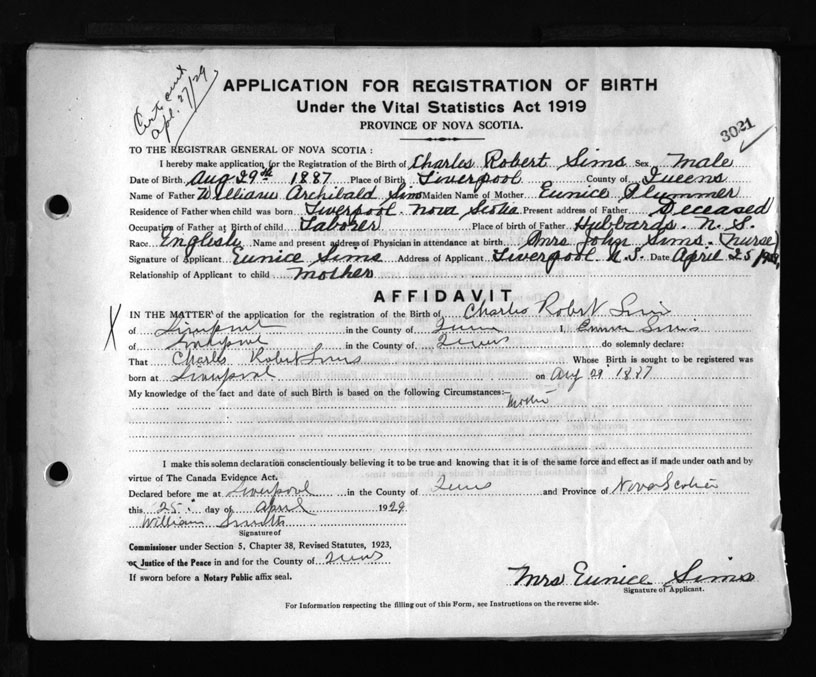 Cert sent
Apl. 27/29
APPLICATION FOR REGISTRATION OF BIRTH
Under the Vital Statistics Act 1919
PROVINCE OF NOVA SCOTIA.
3021
TO THE REGISTRAR GENERAL OF NOVA SCOTIA :
I hereby make application for the Registration of the Birth of Charles Robert Sims Sex Male
Date of Birth Aug 29th 1887 Place of Birth Liverpool County of Queens
Name of Father William Archibald Sims Maiden Name of Mother Eunice Plummer
Residence of Father when child was born Liverpool Nova Scotia Present address of Father Deceased
Occupation of Father at Birth of child Laborer Place of birth of Father Hubbards N. S.
Race English Name and present address of Physician in attendance at birth Mrs John Sims (Nurse)
Signature of Applicant Eunice Sims Address of Applicant Liverpool N.S. Date April 25/1929
Relationship of Applicant to child Mother
AFFIDAVIT
X
IN THE MATTER of the application for the registration of the Birth of Charles Robert Sims
of Liverpool in the County of Queens I, Eunice Sims
of Liverpool in the County of Queens do solemnly declare:
That Charles Robert Sims Whose Birth is sought to be registered was
born at Liverpool on Aug 29 1887
My knowledge of the fact and date of such Birth is based on the following Circumstances:- Mother
I make this solemn declaration conscientiously believing it to be true and knowing that it is of the same force and effect as if made under oath and by
virtue of The Canada Evidence Act.
Declared before me at Liverpool in the County of Queens and Province of Nova Scotia
this 25 day of April 1929
William Smith
Signature of
Commissioner under Section 5, Chapter 38, Revised Statutes, 1923,
or Justice of the Peace in and for the County of Queens
If sworn before a Notary Public affix seal.
Mrs Eunice Sims
Signature of Applicant.
For Information respecting the filling out of this Form, see Instructions on the reverse side.